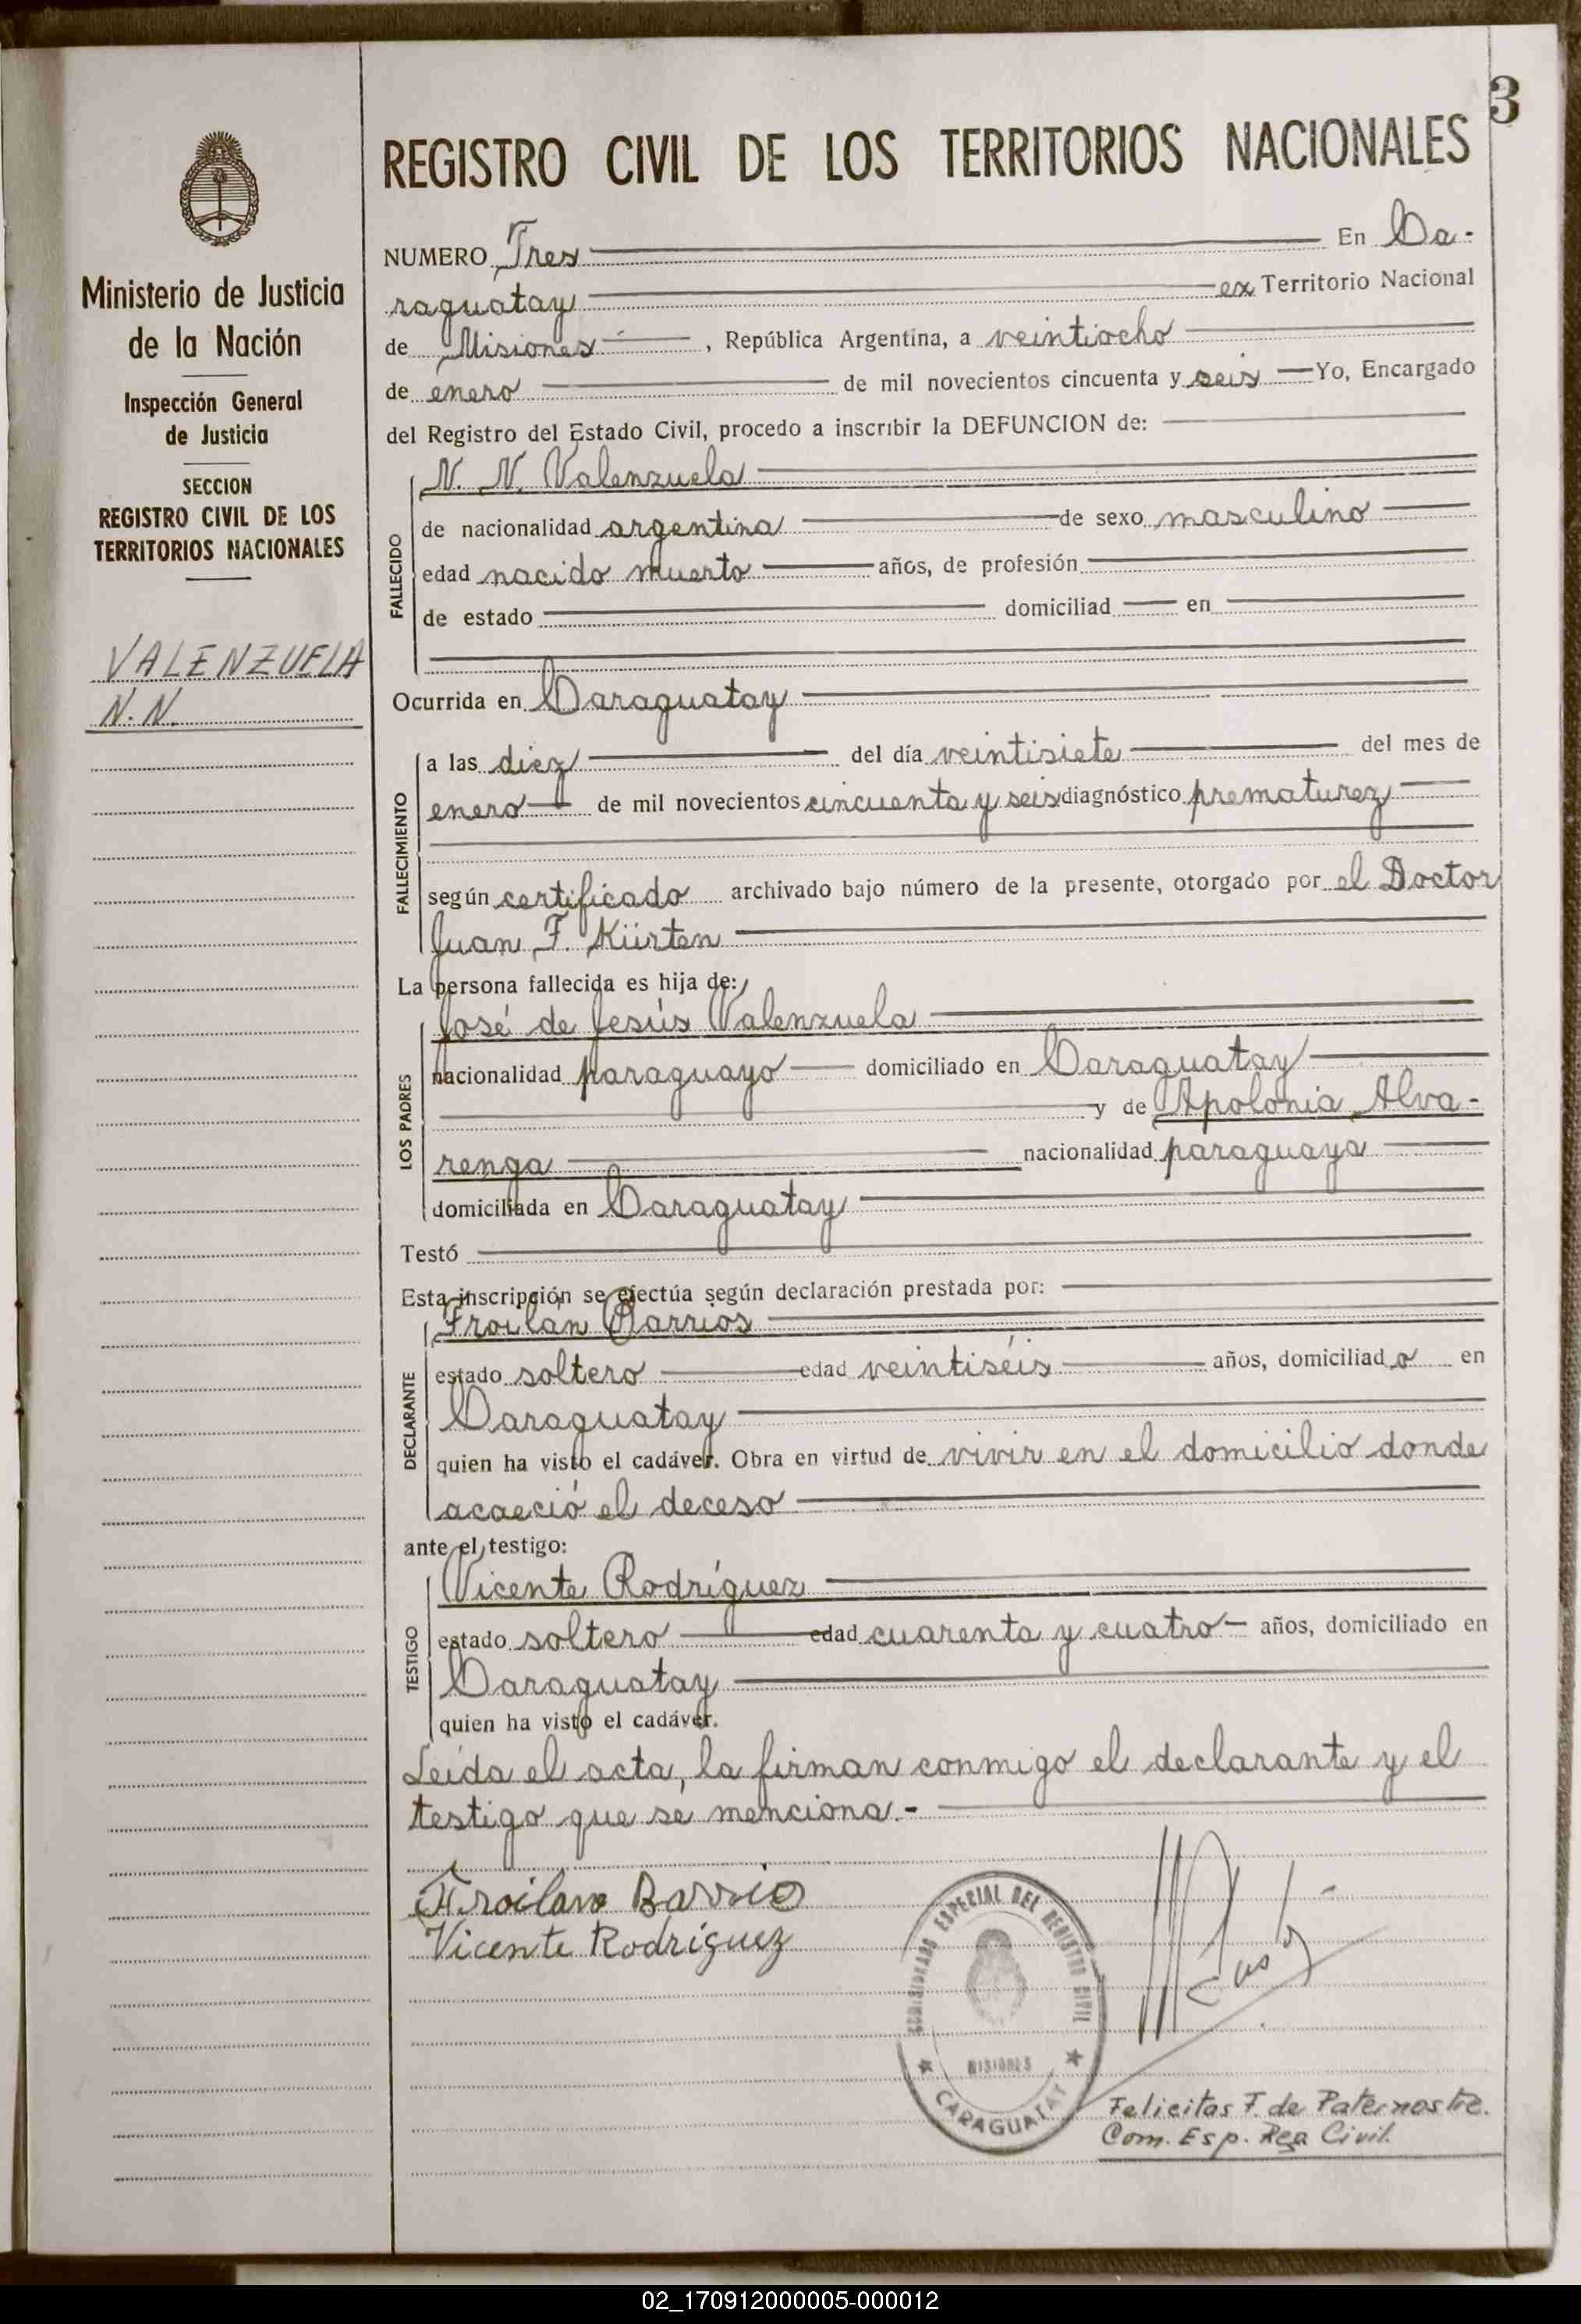 3
REGISTRO CIVIL DE LOS TERRITORIOS NACIONALES
Ministerio de Justicia
de la Nación
Inspección General
de Justicia
SECCION
REGISTRO CIVIL DE LOS
TERRITORIOS NACIONALES
VALENZUELA
N. N.
NUMERO Tres En Ca-
raguatay ex Territorio Nacional
de Misiones, República Argentina, a veintiocho
de enero de mil novecientos cincuenta y seis Yo, Encargado
del Registro del Estado Civil, procedo a inscribir la DEFUNCION de:
FALLECIDO
N. N. Valenzuela
de nacionalidad argentina de sexo masculino
edad nacido muerto años, de profesión
de estado domiciliad en
Ocurrida en Caraguatay
FALLECIMIENTO
a las diez del día veintisiete del mes de
enero de mil novecientos cincuenta y seis diagnóstico prematurez
según certificado archivado bajo número de la presente, otorgado por el Doctor
Juan F. Kürten
La persona fallecida es hija de:
LOS PADRES
José de Jesús Valenzuela
nacionalidad paraguayo domiciliado en Caraguatay
y de Apolonia Alva-
renga nacionalidad paraguaya
domiciliada en Caraguatay
Testó
Esta inscripción se efectúa según declaración prestada por:
DECLARANTE
Froilán Barrios
estado soltero edad veintiséis años, domiciliado en
Caraguatay
quien ha visto el cadáver. Obra en virtud de vivir en el domicilio donde
acaeció el deceso
ante el testigo:
TESTIGO
Vicente Rodríguez
estado soltero edad cuarenta y cuatro años, domiciliado en
Caraguatay
quien ha visto el cadáver.
Leída el acta, la firman conmigo el declarante y el
testigo que se menciona.-
Froilan Barrio
Vicente Rodríguez
COMISIONADO ESPECIAL DEL REGISTRO CIVIL
MISIONES
CARAGUATAY
Felicitas F. de Paternostre.
Com. Esp. Reg Civil.
02_170912000005-000012